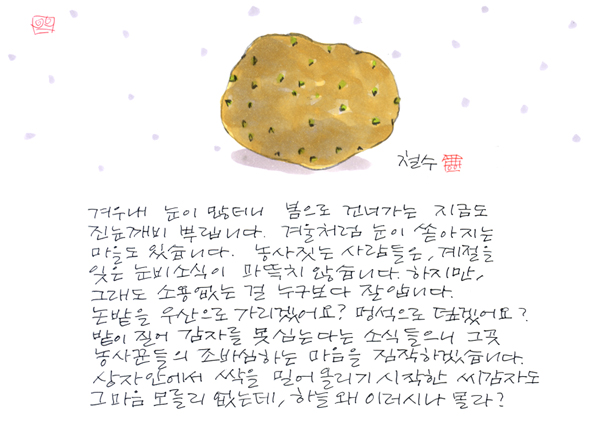 철수
겨우내 눈이 많더니 봄으로 건너가는 지금도
진눈깨비 뿌립니다. 겨울처럼 눈이 쏟아지는
마을도 있습니다. 농사짓는 사람들은, 계절을
잊은 눈비소식이 마뜩치 않습니다. 하지만,
그래도 소용없는 걸 누구보다 잘 압니다.
논밭을 우산으로 가리겠어요? 멍석으로 덮겠어요?
밭이 질어 감자를 못 심는다는 소식 들으니 그곳
농사꾼들의 조바심하는 마음을 짐작하겠습니다.
상자 안에서 싹을 밀어 올리기 시작한 씨감자도
그 마음 모를리 없는데, 하늘 왜 이러시나 몰라?